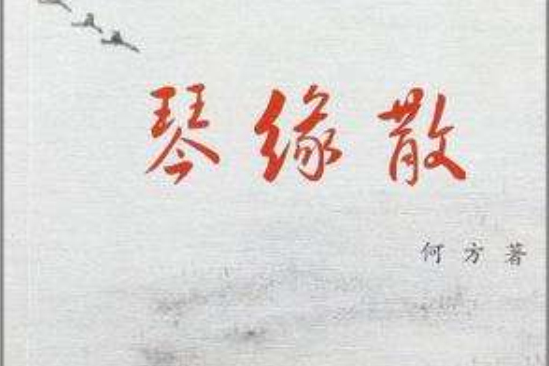 琴缘散
何方著